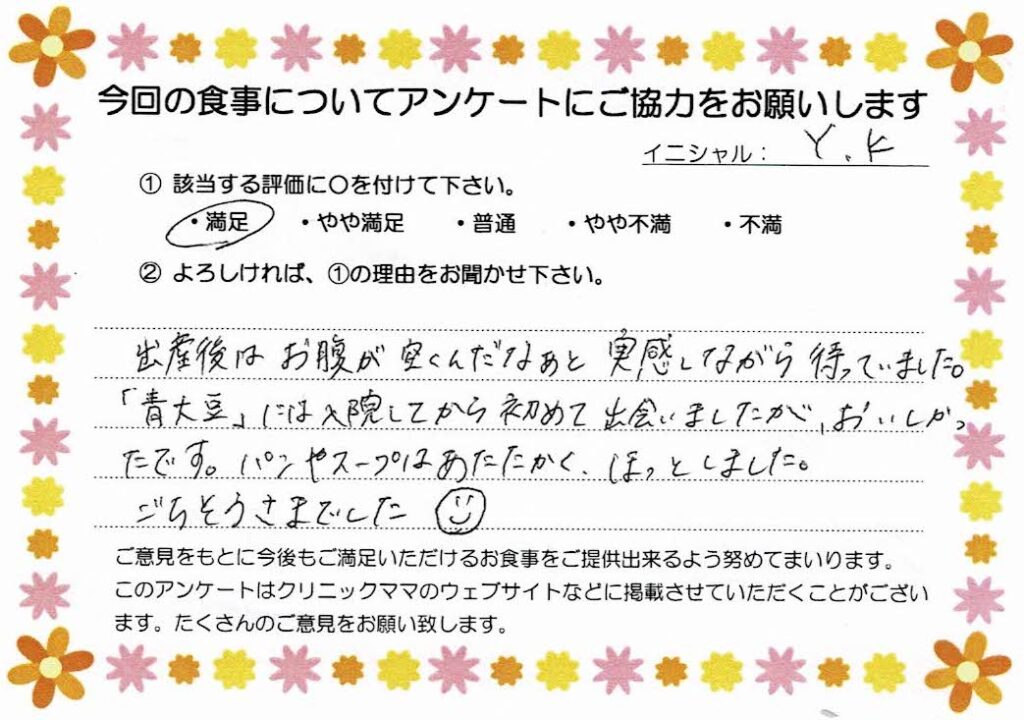 今回の食事についてアンケートにご協力をお願いします
イニシャル： Y.K
① 該当する評価に〇を付けて下さい。
・満足 ・やや満足 ・普通 ・やや不満 ・不満
② よろしければ、①の理由をお聞かせ下さい。
出産後はお腹が空くんだなぁと実感しながら待っていました。
「青大豆」には入院してから初めて出会いましたが、おいしかっ
たです。パンやスープはあたたかく、ほっとしました。
ごちそうさまでした
ご意見をもとに今後もご満足いただけるお食事をご提供出来るよう努めてまいります。
このアンケートはクリニックママのウェブサイトなどに掲載させていただくことがござい
ます。たくさんのご意見をお願い致します。